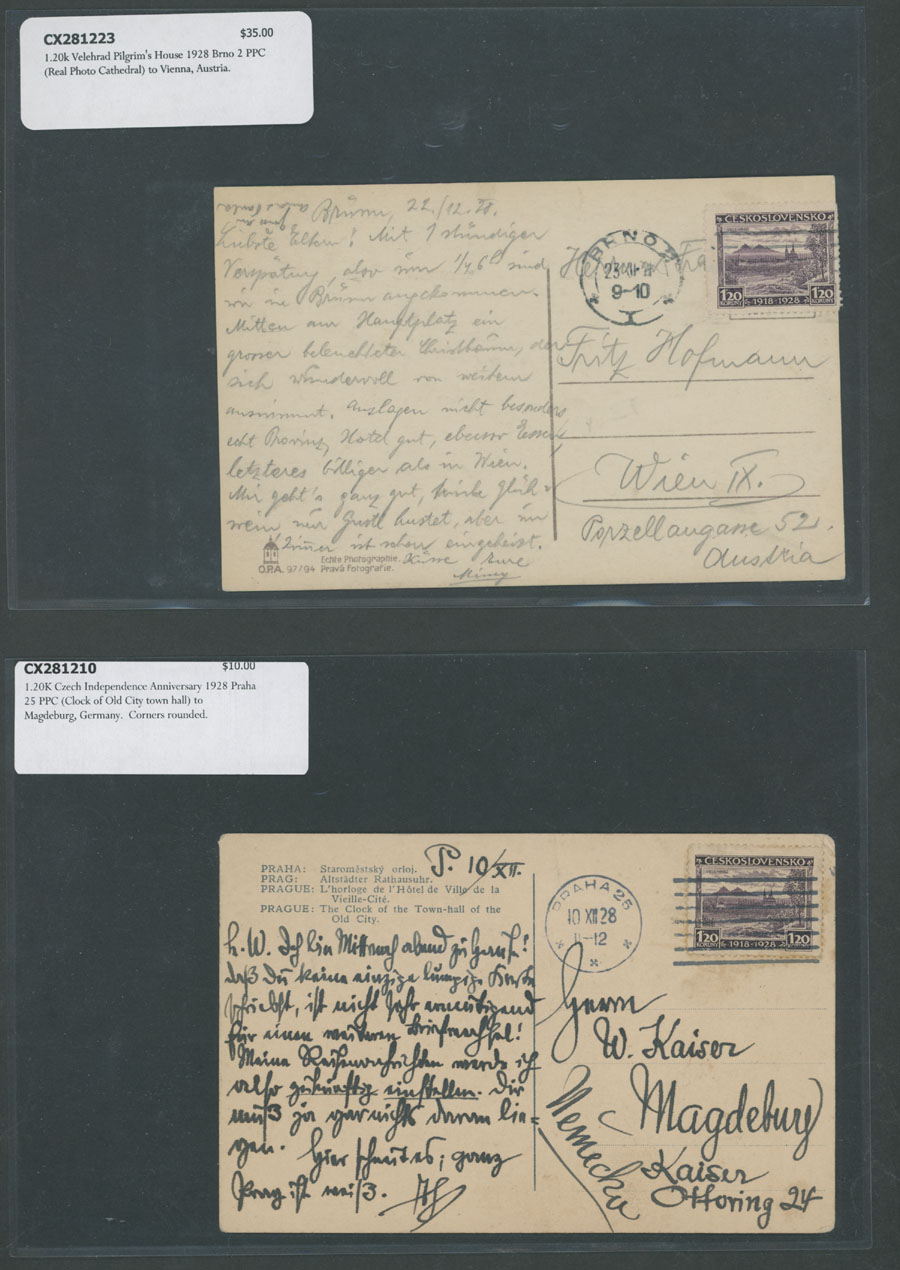 CX281223 $35.00
1.20k Velehrad Pilgrim's House 1928 Brno 2 PPC
(Real Photo Cathedral) to Vienna, Austria.
Brünn, 22./12.28.
Liebste Eltern! Mit 1 stündiger
Verspätung, also um 1/4 6 sind
wir in Brünn angekommen.
Mitten am Hauptplatz ein
grosser beleuchteter Christbaum, der
sich wundervoll von weitem
ausnimmt. Auslagen nicht besonders
echt Provinz, Hotel gut, ebenso Essen,
letzteres billiger als in Wien.
Mir geht's ganz gut, trinke Glüh-
wein nur Gustl hustet, aber im
Zimmer ist schon eingeheizt.
Küsse Eure
Echte Photographie.
O.P.A. 97/94 Pravá fotografie.
BRNO 2
9-10
ČESKOSLOVENSKO
1·20 KORUNY 1918-1928 1·20 KORUNY
Fritz Hofmann
Wien IX.
Porzellangasse 52.
Austria
CX281210 $10.00
1.20K Czech Independence Anniversary 1928 Praha
25 PPC (Clock of Old City town hall) to
Magdeburg, Germany. Corners rounded.
P. 10/XII.
PRAHA: Staroměstský orloj.
PRAG: Altstädter Rathausuhr.
PRAGUE: L'horloge de l'Hôtel de Ville de la
Vieille-Cité.
PRAGUE: The Clock of the Town-hall of the
Old City.
L. W. Ich bin Mittwoch abend zu Haus!
Daß Du keine einzige lumpige Karte
schriebst, ist nicht sehr ermutigend
für einen weiteren Briefwechsel!
Meine Reisenachrichten werde ich
also zukünftig einstellen. Dir
muß ja garnichts daran lie-
gen. Hier schneit es; ganz
Prag ist weiß.
PRAHA 25
10 XII 28
11-12
ČESKOSLOVENSKO
1·20 KORUNY 1918-1928 1·20 KORUNY
Herrn
W. Kaiser
Magdeburg
Kaiser
Ottoring 24
Německo